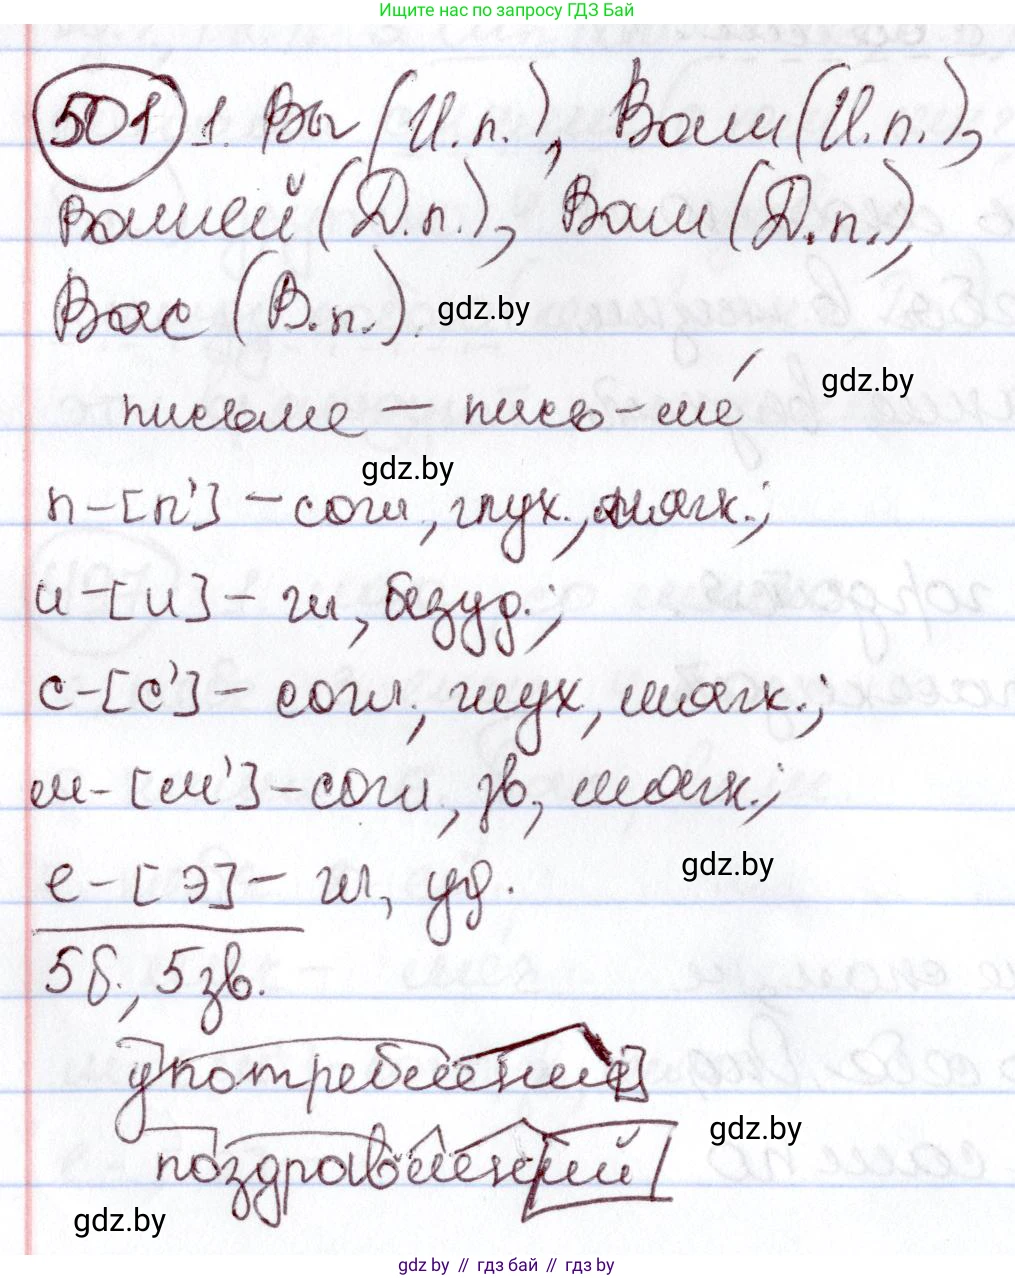 Ищите нас по запросу ГДЗ Бай
501 1. Вы (И.п.), Вами (И.п.),
Вашей (Д.п.), Вам (Д.п.),
Вас (В.п.).
gdz.by
gdz.by
письме – пись-ме́
gdz.by
п – [п'] – согл., глух., мягк.;
и – [и] – гл., безуд.;
с – [с'] – согл., глух, мягк.;
м – [м'] – согл, зв, мягк.;
е – [э] – гл, уд.
gdz.by
5 б., 5 зв.
употребление
gdz.by
поздравлений
gdz.by
gdz.by // гдз бай // gdz.by